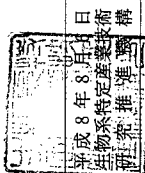 平成8年8月 日
生物系特定産業技術
研究推進機構